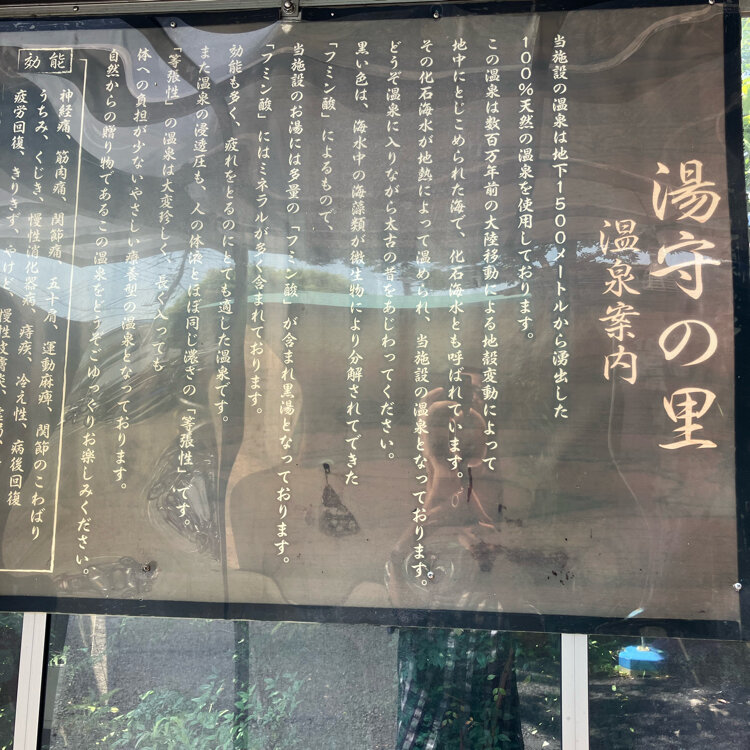 湯守の里
温泉案内
当施設の温泉は地下1500メートルから湧出した
100％天然の温泉を使用しております。
この温泉は数百万年前の大陸移動による地殻変動によって
地中にとじこめられた海で、化石海水とも呼ばれています。
その化石海水が地熱によって温められ、当施設の温泉となっております。
どうぞ温泉に入りながら太古の昔をあじわってください。
黒い色は、海水中の海藻類が微生物により分解されてできた
「フミン酸」によるもので、
当施設のお湯には多量の「フミン酸」が含まれ黒湯となっております。
「フミン酸」にはミネラルが多く含まれております。
効能も多く、疲れをとるのにとても適した温泉です。
また温泉の浸透圧も、人の体液とほぼ同じ濃さの「等張性」です。
「等張性」の温泉は大変珍しく、長く入っても
体への負担が少ないやさしい療養型の温泉となっております。
自然からの贈り物であるこの温泉をどうぞごゆっくりお楽しみください。
効能
神経痛、筋肉痛、関節痛、五十肩、運動麻痺、関節のこわばり
うちみ、くじき、慢性消化器病、痔疾、冷え性、病後回復
疲労回復、きりきず、やけど、慢性皮膚炎、